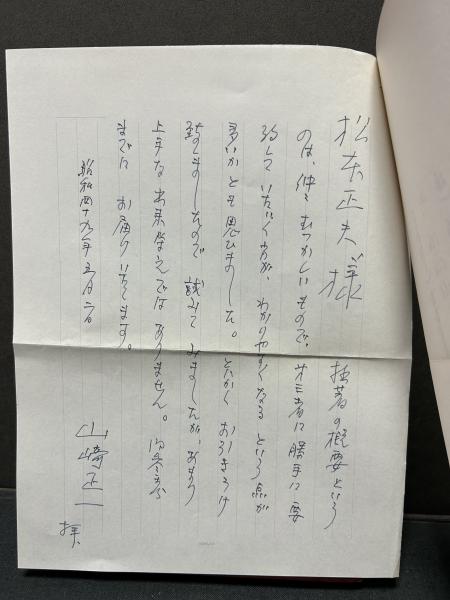 松本正夫様
拙著の概要という
のは、仲々むつかしいもので、才三者に勝手に要
約していただく方が、わかりやすくなるという点が
多いかとも思ひました。とにかくお引きうけ
致しましたので 試みてみましたが、あまり
上手な出来栄えではありません。御参考
までにお届けいたします。
昭和四十九年五月六日
山崎正一
拝